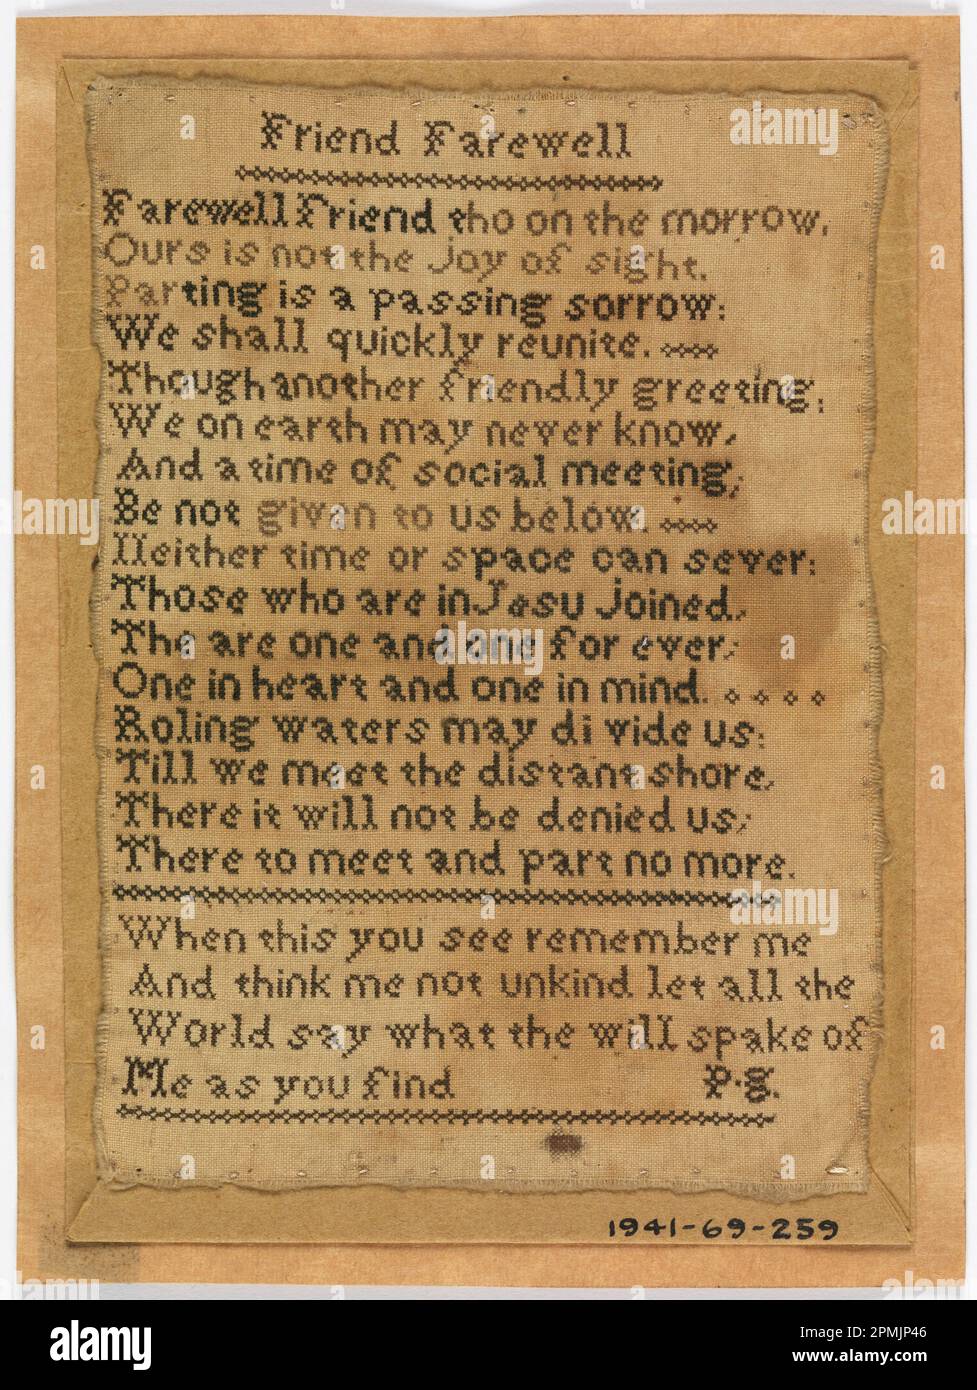 Friend Farewell
Farewell Friend tho on the morrow,
Ours is not the Joy of sight.
Parting is a passing sorrow:
We shall quickly reunite.
Though another friendly greeting;
We on earth may never know,
And a time of social meeting;
Be not given to us below.
Neither time or space can sever:
Those who are in Jesu Joined,
The are one and one for ever;
One in heart and one in mind.
Roling waters may di vide us:
Till we meet the distant shore,
There it will not be denied us;
There to meet and part no more.
When this you see remember me
And think me not unkind let all the
World say what the will spake of
Me as you find P.g.
1941-69-259
a alamy
alamy
Image ID: 2PMJP46
www.alamy.com